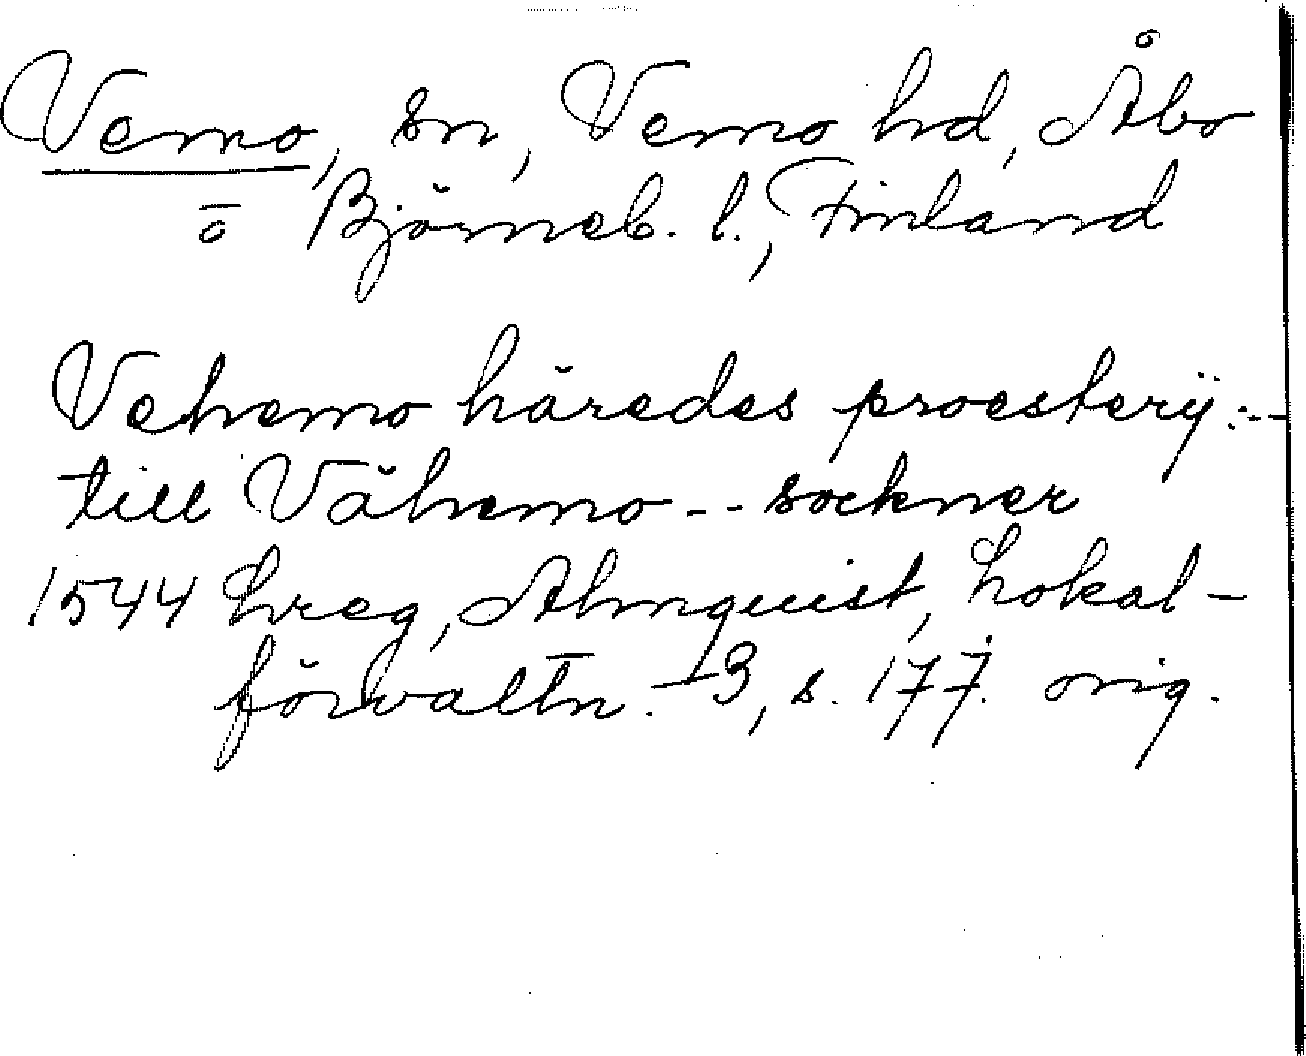 Vemo, sn, Vemo hd, Åbo
o Björneb. l., Finland
Vehemo häredes proesterÿ :--
till Vähemo -- sockner
1544 Lreg, Almquist, Lokal-
förvaltn. 13, s. 177. orig.